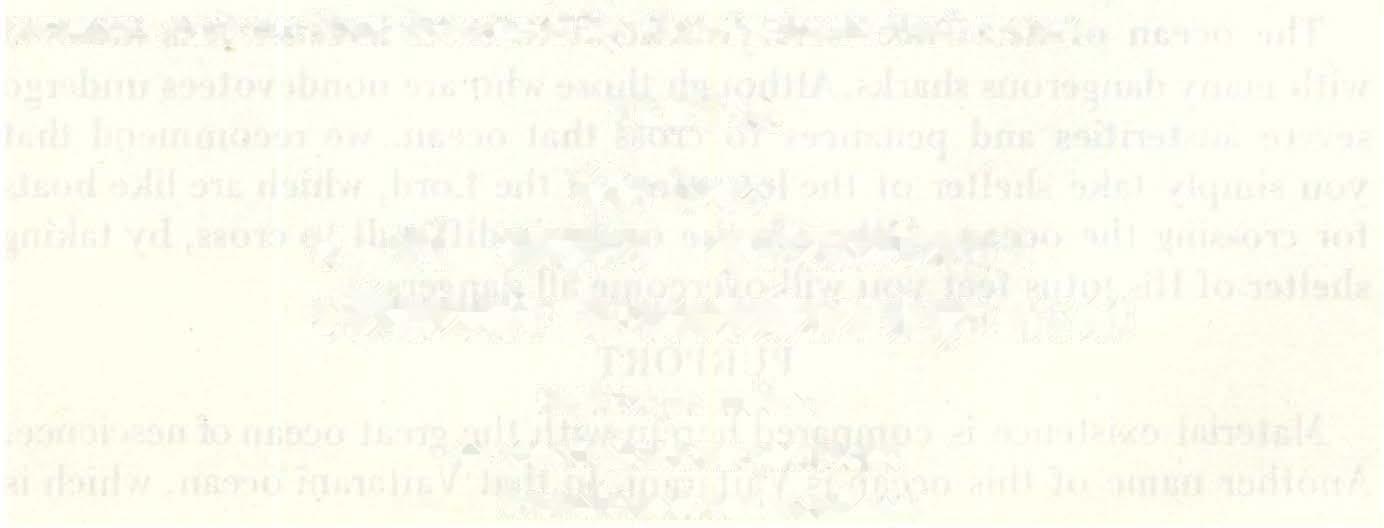 The ocean of
with many dangerous sharks. Although those who are nondevotees undergo
severe austerities and penances to cross that ocean, we recommend that
you simply take shelter of the of the Lord, which are like boats
for crossing the ocean. difficult to cross, by taking
shelter of His lotus feet you will overcome all dangers.
PURPORT
Material existence is compared herein with the great ocean of nescience.
Another name of this ocean is Vaitaraṇī. In that Vaitaraṇī ocean, which is